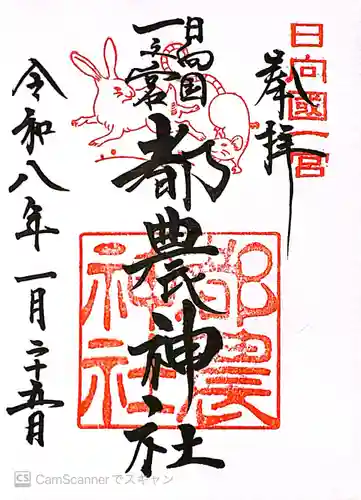 日向國一宮
奉拝
日向国
一之宮
都農神社
都農神社
令和八年一月二十五日
CS CamScanner でスキャン